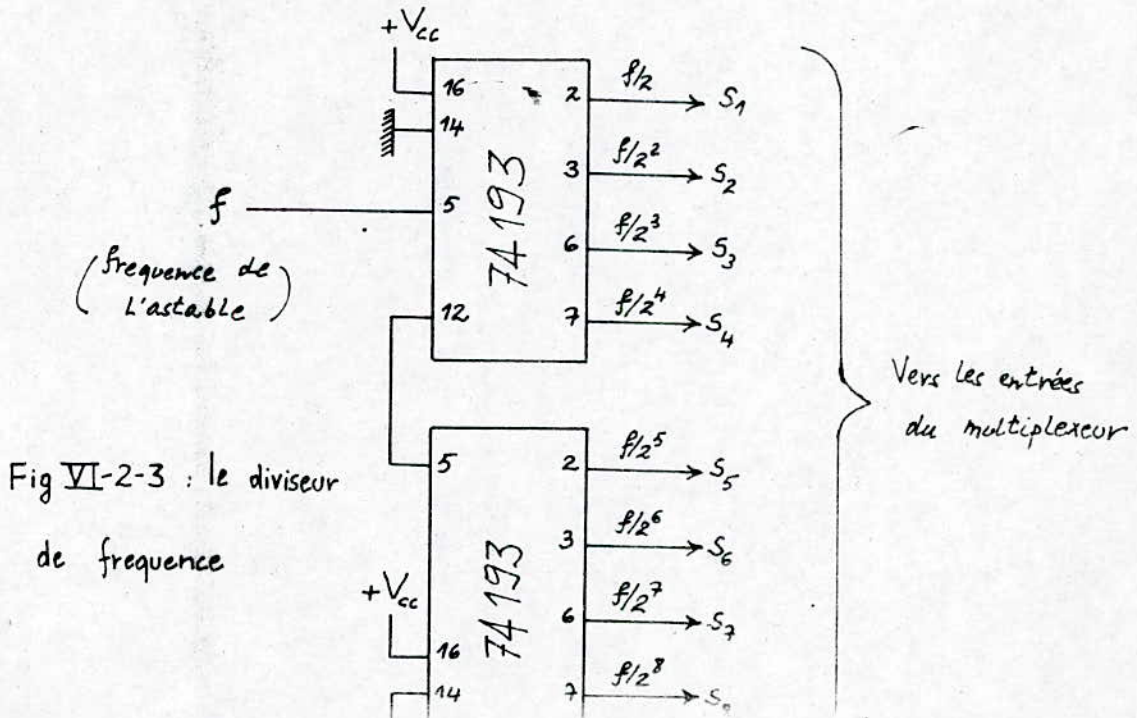 +Vcc
16
14
f
5
(frequence de
L'astable)
12
74 193
2 f/2 S1
3 f/2² S2
6 f/2³ S3
7 f/2⁴ S4
Vers les entrées
du multiplexeur
Fig VI-2-3 : le diviseur
de frequence
5
+Vcc
16
14
74 193
2 f/2⁵ S5
3 f/2⁶ S6
6 f/2⁷ S7
7 f/2⁸